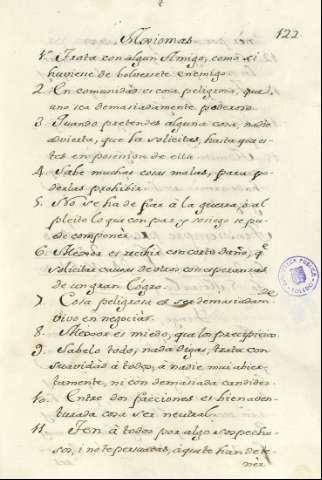 122
Maxiomas
1. Trata con algun Amigo, como si
huviene de bolverete enemigo.
2. En comunidades es cosa peligrosa, que
uno sea demasiadamente poderoso.
3. Quando pretendes alguna cosa, nadie
advierta, que la solicitas, hasta que es-
tes en posesion de ella
4. Sabe muchas cosas malas, para po-
derlas prohibir
5. No se ha de fiar à la guerra, ò al
pleito lo que con paz, y sosiego se pu-
de componer
6. Menos es recibir con corto daño, q.e
solicitar causas de otros con esperanzas
de un gran logro.
7. Cosa peligrosa es ser demasiadam.te
vivo en negociar.
8. Mejor es miedo, que los precipicios.
9. Sabelo todo, nada digas, trata con
suavidad à todos, à nadie mui abier-
tamente, ni con demasiada candidez
10. Entre dos facciones es bienaven-
turada cosa ser neutral.
11. Ten à todos por algo sospecho-
sos, i no te persuadas, à que te han de te-
ner